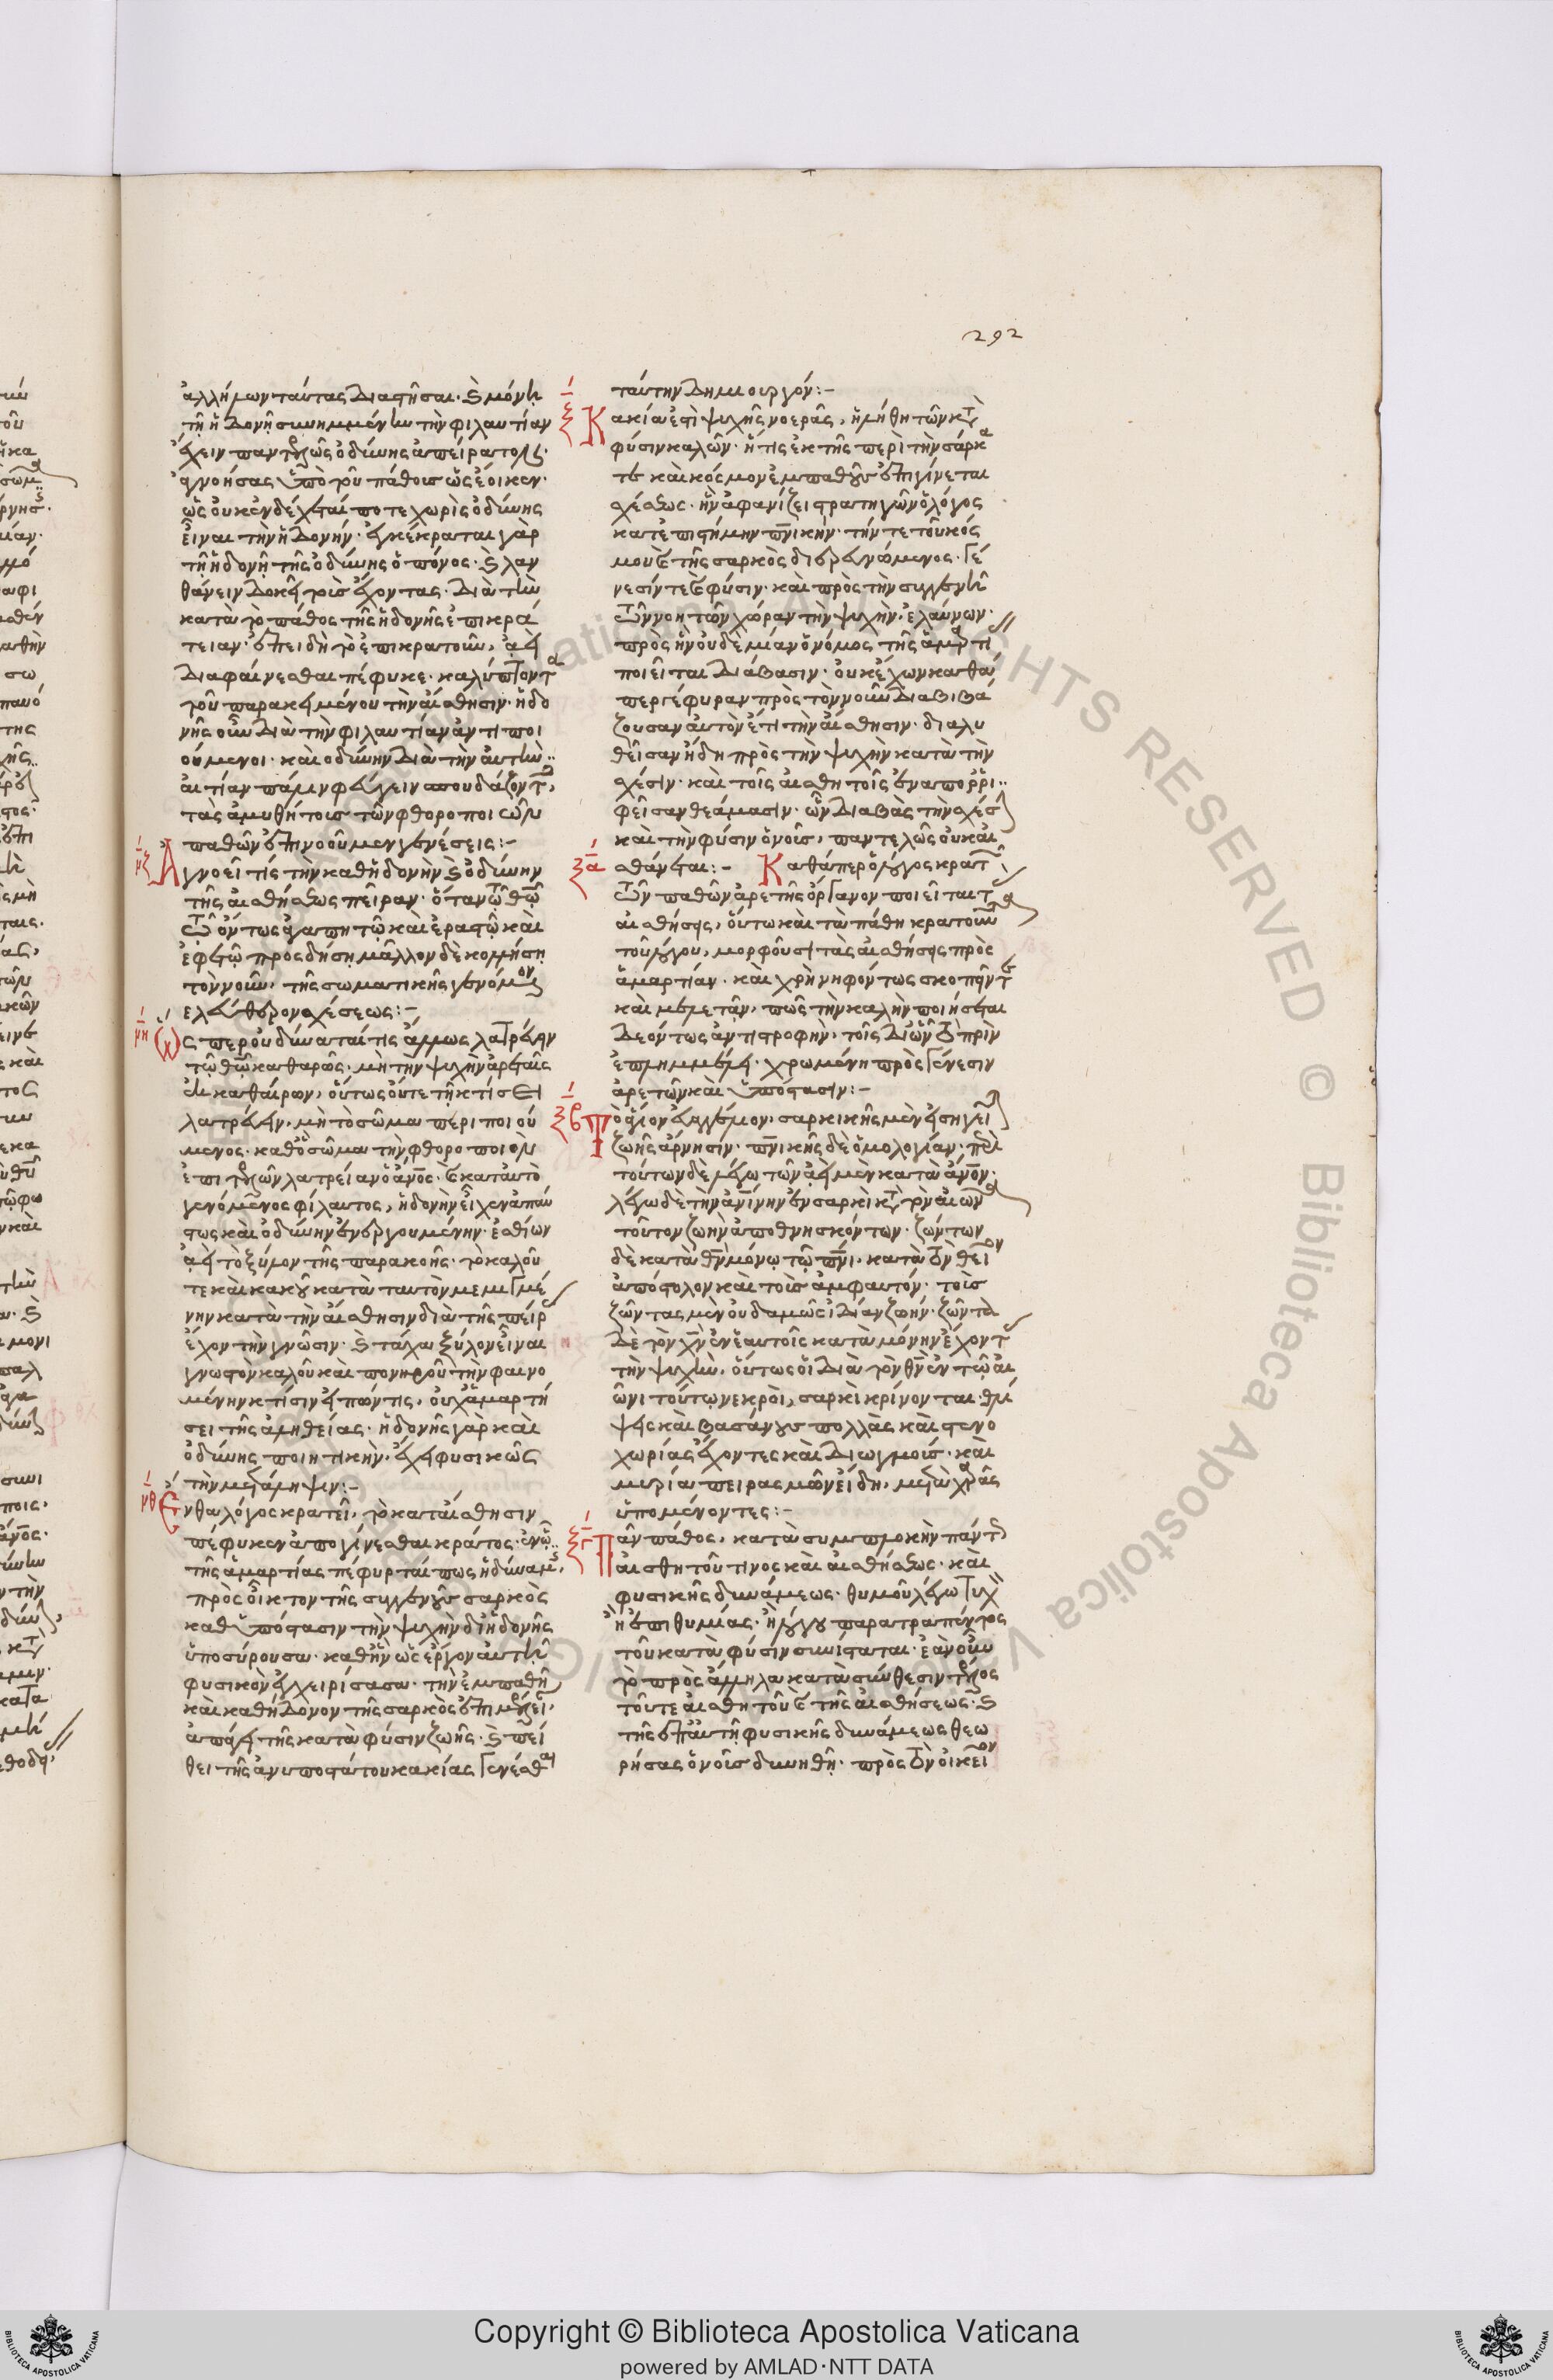 292
ἀλλήλων ταύτας διαστῆσαι· καὶ μόνῃ
τῇ ἡδονῇ συνημμένην τὴν φιλαυτίαν
ἔχειν παντελῶς ὀδύνης ἀπείρατον·
ἀγνοήσας ὑπὸ τοῦ πάθους ὡς ἔοικεν·
ὡς οὐκ ἐνδέχεταί ποτε χωρὶς ὀδύνης
εἶναι τὴν ἡδονήν· ἐγκέκραται γὰρ
τῇ ἡδονῇ τῆς ὀδύνης ὁ πόνος· καὶ λαν
θάνειν δοκεῖ τοὺς ἔχοντας· διὰ τὴν
κατὰ τὸ πάθος τῆς ἡδονῆς ἐπικρά
τειαν· ἐπειδὴ τὸ ἐπικρατοῦν, ἀεὶ
διαφαίνεσθαι πέφυκε· καλύπτοντα
τοῦ παρακειμένου τὴν αἴσθησιν· ἡδο
νῆς οὖν διὰ τὴν φιλαυτίαν ἀντιποι
ούμενοι· καὶ ὀδύνην διὰ τὴν αὐτὴν
αἰτίαν πάλιν φεύγειν σπουδάζοντες,
τὰς ἀμυθήτους τῶν φθοροποιῶν
παθῶν ἐπινοοῦμεν γενέσεις:-
νζ Ἀγνοεῖ τίς τὴν καθ' ἡδονὴν καὶ ὀδύνην
τῆς αἰσθήσεως πεῖραν· ὅταν τῷ θῶ
τῷ ὄντως ἀγαπητῷ καὶ ἐραστῷ καὶ
ἐφετῷ προσδήσῃ μᾶλλον δὲ κολλήσῃ
τὸν νοῦν, τῆς σωματικῆς γενόμενον
ἐλεύθερον σχέσεως:-
νη Ὥσπερ οὐ δύναταί τις ἄλλως λατρεύειν
τῷ θῶ καθαρῶς, μὴ τὴν ψυχὴν ἀρεταῖς
ἐκκαθαίρων, οὕτως οὔτε τῇ κτίσει
λατρεύειν, μὴ τὸ σῶμα περιποιού
μενος· καθ' ὃ σῶμα τὴν φθοροποιὸν
ἐπιτελῶν λατρείαν ὁ ἄνος· καὶ κατ' αὐτὸ
γενόμενος φίλαυτος, ἡδονὴν εἶχεν ἀπαύ
στως καὶ ὀδύνην ἐνεργουμένην· ἐσθίων
ἀεὶ τὸ ξύλον τῆς παρακοῆς· τὸ καλοῦ
τε καὶ κακοῦ κατὰ ταυτὸν μεμιγμέ
νην κατὰ τὴν αἴσθησιν διὰ τῆς πείρας
ἔχον τὴν γνῶσιν· καὶ τάχα ξύλον εἶναι
γνωστὸν καλοῦ καὶ πονηροῦ τὴν φαινο
μένην κτίσιν εἰπών τις, οὐχ ἁμαρτή
σει τῆς ἀληθείας· ἡδονῆς γὰρ καὶ
ὀδύνης ποιητικὴν, ἔχει φυσικῶς
τὴν μετάληψιν:-
νθ Ἔνθα λόγος κρατεῖ, τὸ κατ' αἴσθησιν
πέφυκεν ἀπογίνεσθαι κράτος· ἐν ᾧ
τῆς ἁμαρτίας πέφυρταί πως ἡ δύναμις,
πρὸς οἶκτον τῆς συγγενοῦς σαρκὸς
καθ' ὑπόστασιν τὴν ψυχὴν δι' ἡδονῆς
ὑποσύρουσα· καθ' ἣν ὡς ἔργον αὐτῇ
φυσικὸν ἐγχειρίσασα· τὴν ἐμπαθῆ
καὶ καθ' ἡδονὴν τῆς σαρκὸς ἐπιμέλειαν,
ἀπάγει τῆς κατὰ φύσιν ζωῆς· καὶ πεί
θει τῆς ἀνυποστάτου κακίας γενέσθαι
ταύτην δημιουργόν:-
ξ Κακία ἐστὶ ψυχῆς νοερᾶς, ἡ λήθη τῶν κατὰ
φύσιν καλῶν· ἥτις ἐκ τῆς περὶ τὴν σάρκα
τε καὶ κόσμον ἐμπαθοῦς ἐπιγίνεται
σχέσεως· ἣν ἀφανίζει στρατηγῶν ὁ λόγος
κατ' ἐπιστήμην πνικὴν· τήν τε τοῦ κόσ
μου καὶ τῆς σαρκὸς διερευνώμενος· γέ
νεσίν τε καὶ φύσιν· καὶ πρὸς τὴν συγγενῆ
τῶν νοητῶν χώραν τὴν ψυχὴν, ἐλαύνων·
πρὸς ἣν οὐδὲ μίαν ὁ νόμος τῆς ἁμαρτίας
ποιεῖται διάβασιν· οὐκ ἔχων καθά
περ γέφυραν πρὸς τὸν νοῦν διαβιβά
ζουσαν αὐτὸν ἔτι τὴν αἴσθησιν· διαλυ
θεῖσαν ἤδη πρὸς τὴν ψυχὴν κατὰ τὴν
σχέσιν· καὶ τοῖς αἰσθητοῖς ἐναπορρι
φεῖσαν θεάμασιν· ὧν διαβὰς τὴν σχέσιν
καὶ τὴν φύσιν ὁ νοῦς, παντελῶς οὐκ αἰ
σθάνεται:-
ξα Καθάπερ ὁ λόγος κρατῶν
τῶν παθῶν ἀρετῆς ὄργανον ποιεῖται τὰς
αἰσθήσεις, οὕτω καὶ τὰ πάθη κρατοῦντα
τοῦ λόγου, μορφοῦσι τὰς αἰσθήσεις πρὸς
ἁμαρτίαν· καὶ χρὴ νηφόντως σκοπεῖν τε
καὶ μελετᾶν, πῶς τὴν καλὴν ποιήσεται
δεόντως ἀντιστροφὴν, τοῖς δι' ὧν τὸ πρὶν
ἐπλημμέλει· χρωμένη πρὸς γένεσιν
ἀρετῶν καὶ ὑπόστασιν:-
ξβ Τὸ ἅγιον εὐαγγέλιον, σαρκικῆς μὲν εἰσηγεῖται
ζωῆς ἄρνησιν· πνικῆς δὲ ὁμολογίαν· περὶ
τούτων δὲ λέγω τῶν ἀεὶ μὲν κατὰ ἄνον·
λέγω δὲ τὴν ἀνίνην ἐν σαρκὶ κατὰ τὸν αἰῶνα
τοῦτον ζωὴν ἀποθνησκόντων· ζώντων
δὲ κατὰ θν μόνῳ τῷ πνι, κατὰ τὸν θεῖον
ἀπόστολον καὶ τοὺς ἀμφ' αὐτόν· τοὺς
ζῶντας μὲν οὐδαμῶς ἰδίαν ζωήν· ζῶντα
δὲ τὸν χν ἐν ἑαυτοῖς κατὰ μόνην ἔχοντας
τὴν ψυχὴν, οὕτως οἱ διὰ τὸν θν ἐν τῷ αἰ
ῶνι τούτῳ νεκροὶ, σαρκὶ κρίνονται· θλί
ψεις καὶ βασάνους πολλὰς καὶ στενο
χωρίας ἔχοντες καὶ διωγμοὺς· καὶ
μυρία πειρασμῶν εἴδη, μετὰ χαρᾶς
ὑπομένοντες:-
ξγ Πᾶν πάθος, κατὰ συμπλοκὴν πάντως
αἰσθητοῦ τινος καὶ αἰσθήσεως· καὶ
φυσικῆς δυνάμεως· θυμοῦ λέγω τυχὸν
ἢ ἐπιθυμίας· ἢ λόγου παρατραπέντος
τοῦ κατὰ φύσιν συνίσταται· ἐὰν οὖν
τὸ πρὸς ἄλληλα κατὰ σύνθεσιν τέλος
τοῦ τε αἰσθητοῦ καὶ τῆς αἰσθήσεως· καὶ
τῆς ἐπ' αὐτῇ φυσικῆς δυνάμεως θεω
ρήσας ὁ νοῦς δυνηθῇ· πρὸς τὸν οἰκεῖον
Copyright © Biblioteca Apostolica Vaticana
powered by AMLAD·NTT DATA